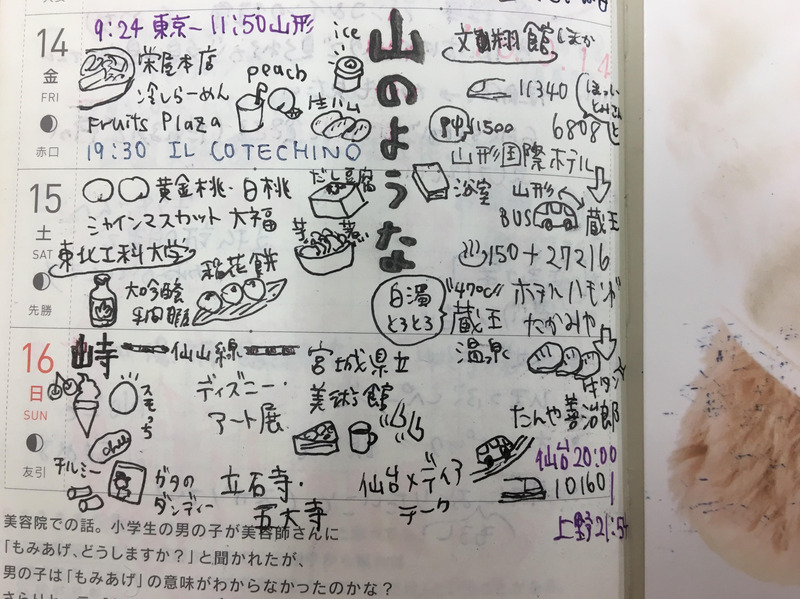 14
金
FRI
赤口
9:24 東京－11:50山形
栄屋本店
冷しらーめん
peach
ice
生ハム
Fruits Plaza
19:30 IL COTECHINO
山のような
文翔館ほか
11340
6808
1500
山形国際ホテル
15
土
SAT
先勝
黄金桃・白桃
だし豆腐
シャインマスカット 大福
芋煮
東北工科大学
稲花餅
大吟醸
浴室
山形
BUS
蔵王
150+27216
白濁
とろとろ
47℃
ホテルハモンド
蔵王
たかみや
温泉
16
日
SUN
友引
山寺
仙山線
宮城県立
美術館
スモモ
ディズニー・
アート展
牛タン
たんや善治郎
chill
チルミー
ガタの
ダンディー
立石寺・
五大寺
仙台メディア
テーク
仙台20:00
10160
上野21:5
美容院での話。小学生の男の子が美容師さんに
「もみあげ、どうしますか？」と聞かれたが、
男の子は「もみあげ」の意味がわからなかったのかな？